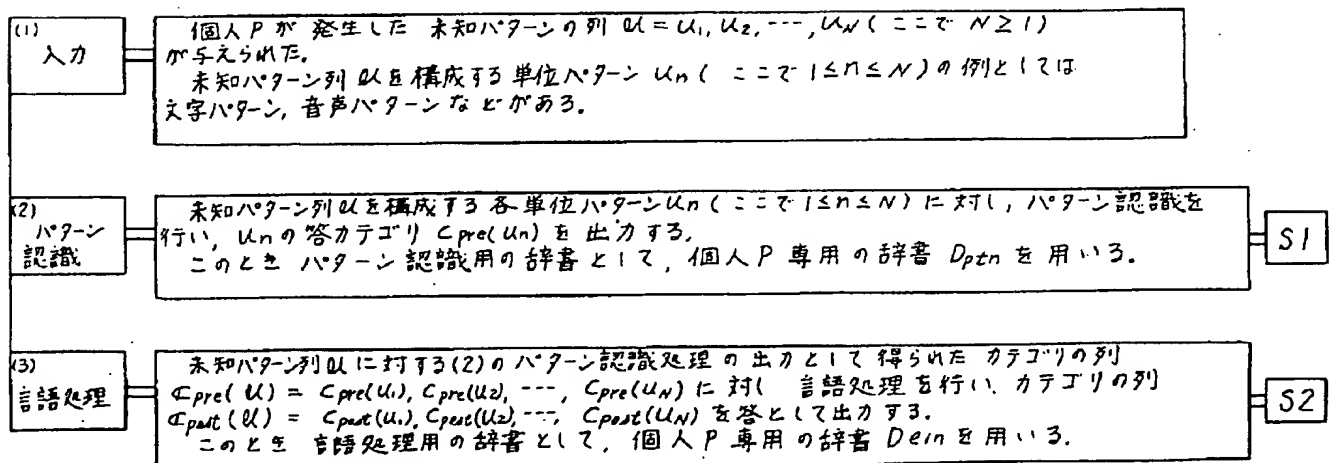 (1)
入力
個人Pが発生した未知パターンの列 𝕌 = U₁, U₂, ---, U_N ( ここで N ≥ 1 )
が与えられた。
未知パターン列 𝕌 を構成する単位パターン Un ( ここで 1≤n≤N ) の例としては
文字パターン, 音声パターンなどがある。
(2)
パターン
認識
未知パターン列 𝕌 を構成する各単位パターン Un ( ここで 1≤n≤N ) に対し, パターン認識を
行い, Unの答カテゴリ Cpre(Un) を出力する。
このとき パターン認識用の辞書として, 個人P専用の辞書 Dptn を用いる。
S1
(3)
言語処理
未知パターン列 𝕌 に対する(2)のパターン認識処理の出力として得られた カテゴリの列
ℂpre(𝕌) = Cpre(U₁), Cpre(U₂), ---, Cpre(U_N) に対し 言語処理を行い、カテゴリの列
ℂpost(𝕌) = Cpost(U₁), Cpost(U₂), ---, Cpost(U_N) を答として出力する。
このとき 言語処理用の辞書として, 個人P専用の辞書 Dein を用いる.
S2